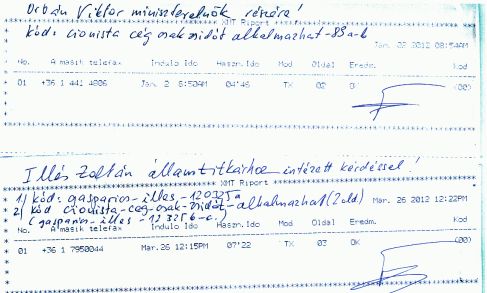 Orbán Viktor miniszterelnök részére!
kód: cionista cég csak zsidót alkalmazhat-89a-b
XMT Riport
Jan. 02 2012 08:54AM
No. A masik telefax Indulo Ido Haszn.Ido Mod Oldal Eredm. Kod
01 +36 1 441 4806 Jan. 2 8:50AM 04'46 TX 02 (00)
Illés Zoltán államtitkárhoz intézett kérdéssel!
XMT Riport
1) kód: gasparics-illes-120325a
2) kód cionista-cég-csak-zsidót-alkalmazhat (2 old)
Mar. 26 2012 12:22PM
(gasparics-illes-120325b-c.)
No. A masik telefax Indulo Ido Haszn.Ido Mod Oldal Eredm. Kod
01 +36 1 7950044 Mar.26 12:15PM 07'22 TX 03 OK (00)